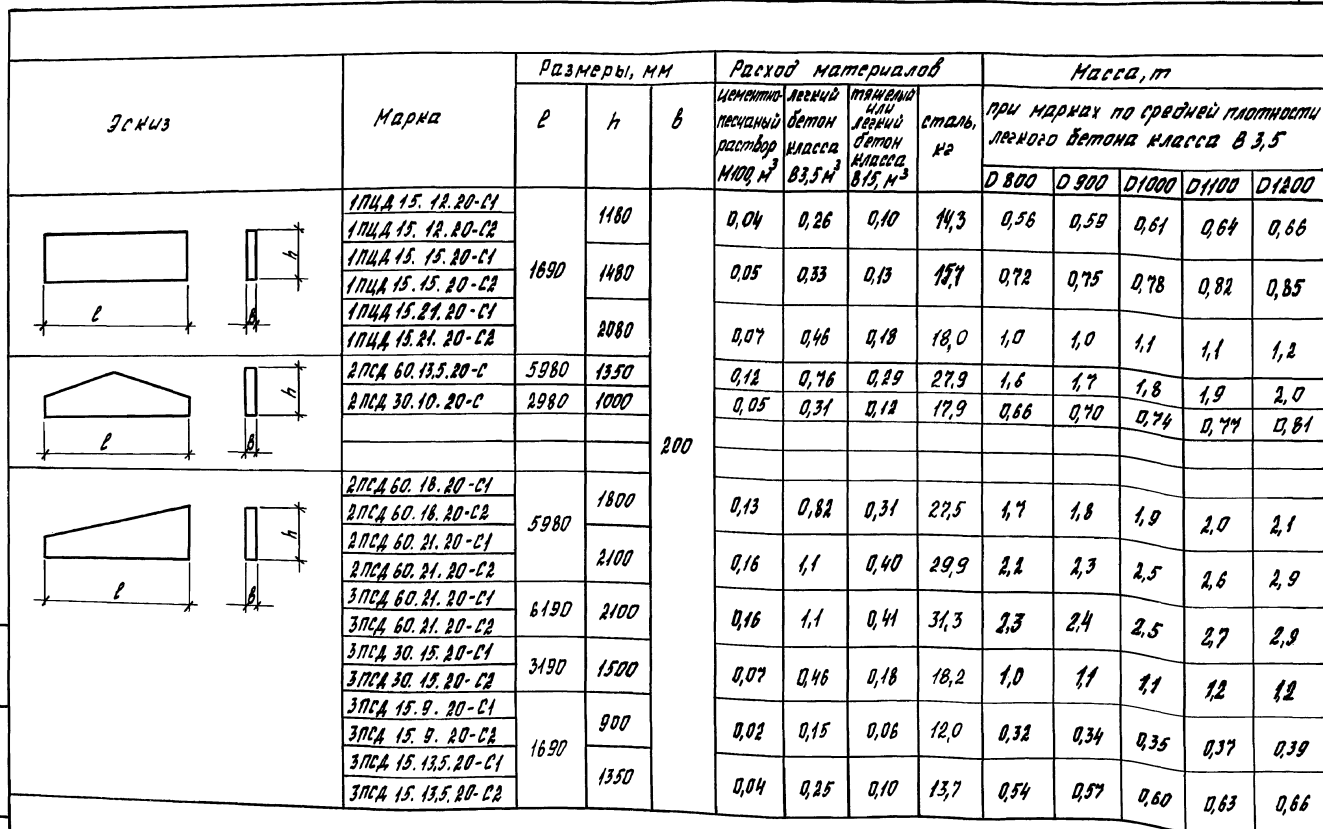 Эскиз Марка Размеры, мм Расход материалов Масса, т
l h b цементно-песчаный раствор М100, м³ легкий бетон класса В3,5 м³ тяжелый или легкий бетон класса В15, м³ сталь, кг при марках по средней плотности легкого бетона класса В 3,5
D 800 D 900 D1000 D1100 D1200
1ПЦД 15. 12.20-С1 1690 1180 200 0,04 0,26 0,10 14,3 0,56 0,59 0,61 0,64 0,66
1ПЦД 15. 12.20-С2
1ПЦД 15. 15.20-С1 1480 0,05 0,33 0,13 15,7 0,72 0,75 0,78 0,82 0,85
1ПЦД 15. 15. 20-С2
1ПЦД 15.21. 20-С1 2080 0,07 0,46 0,18 18,0 1,0 1,0 1,1 1,1 1,2
1ПЦД 15.21. 20-С2
l b h
2ПСД 60.13,5.20-С 5980 1350 0,12 0,76 0,29 27,9 1,6 1,7 1,8 1,9 2,0
2ПСД 30.10.20-С 2980 1000 0,05 0,31 0,12 17,9 0,66 0,70 0,74 0,77 0,81
l b h
2ПСД 60. 18. 20-С1 5980 1800 0,13 0,82 0,31 27,5 1,7 1,8 1,9 2,0 2,1
2ПСД 60. 18. 20-С2
2ПСД 60. 21. 20-С1 2100 0,16 1,1 0,40 29,9 2,2 2,3 2,5 2,6 2,9
2ПСД 60. 21. 20-С2
3ПСД 60. 21. 20-С1 6190 2100 0,16 1,1 0,41 31,3 2,3 2,4 2,5 2,7 2,9
3ПСД 60. 21. 20-С2
3ПСД 30. 15. 20-С1 3190 1500 0,07 0,46 0,18 18,2 1,0 1,1 1,1 1,2 1,2
3ПСД 30. 15. 20-С2
3ПСД 15. 9. 20-С1 1690 900 0,02 0,15 0,06 12,0 0,32 0,34 0,35 0,37 0,39
3ПСД 15. 9. 20-С2
3ПСД 15. 13,5.20-С1 1350 0,04 0,25 0,10 13,7 0,54 0,57 0,60 0,63 0,66
3ПСД 15. 13,5. 20-С2
l b h